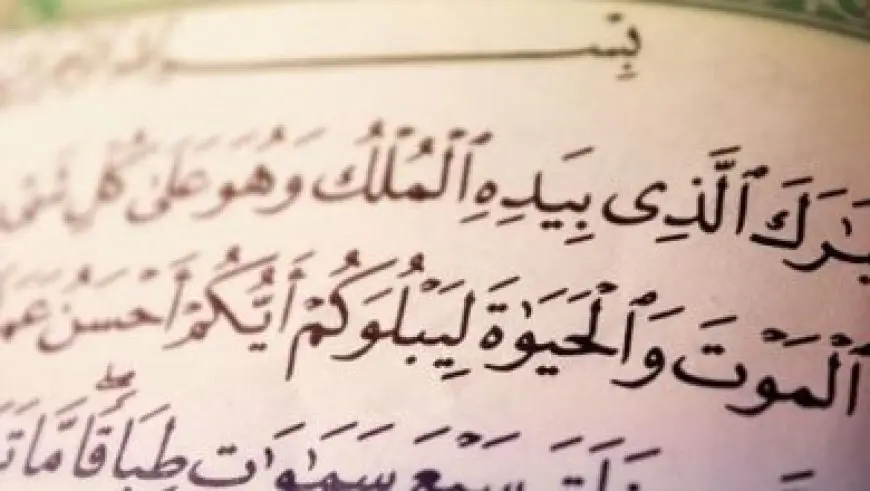 بِسْـــــــمِ
ـبَـٰرَكَ ٱلَّذِى بِيَدِهِ ٱلْمُلْكُ وَهُوَ عَلَىٰ كُلِّ شَىْ
ٱلْمَوْتَ وَٱلْحَيَوٰةَ لِيَبْلُوَكُمْ أَيُّكُمْ أَحْسَنُ عَمَـ
سَبْعَ سَمَـٰوَٰتٍ طِبَاقًا ۖ مَّا تَـ